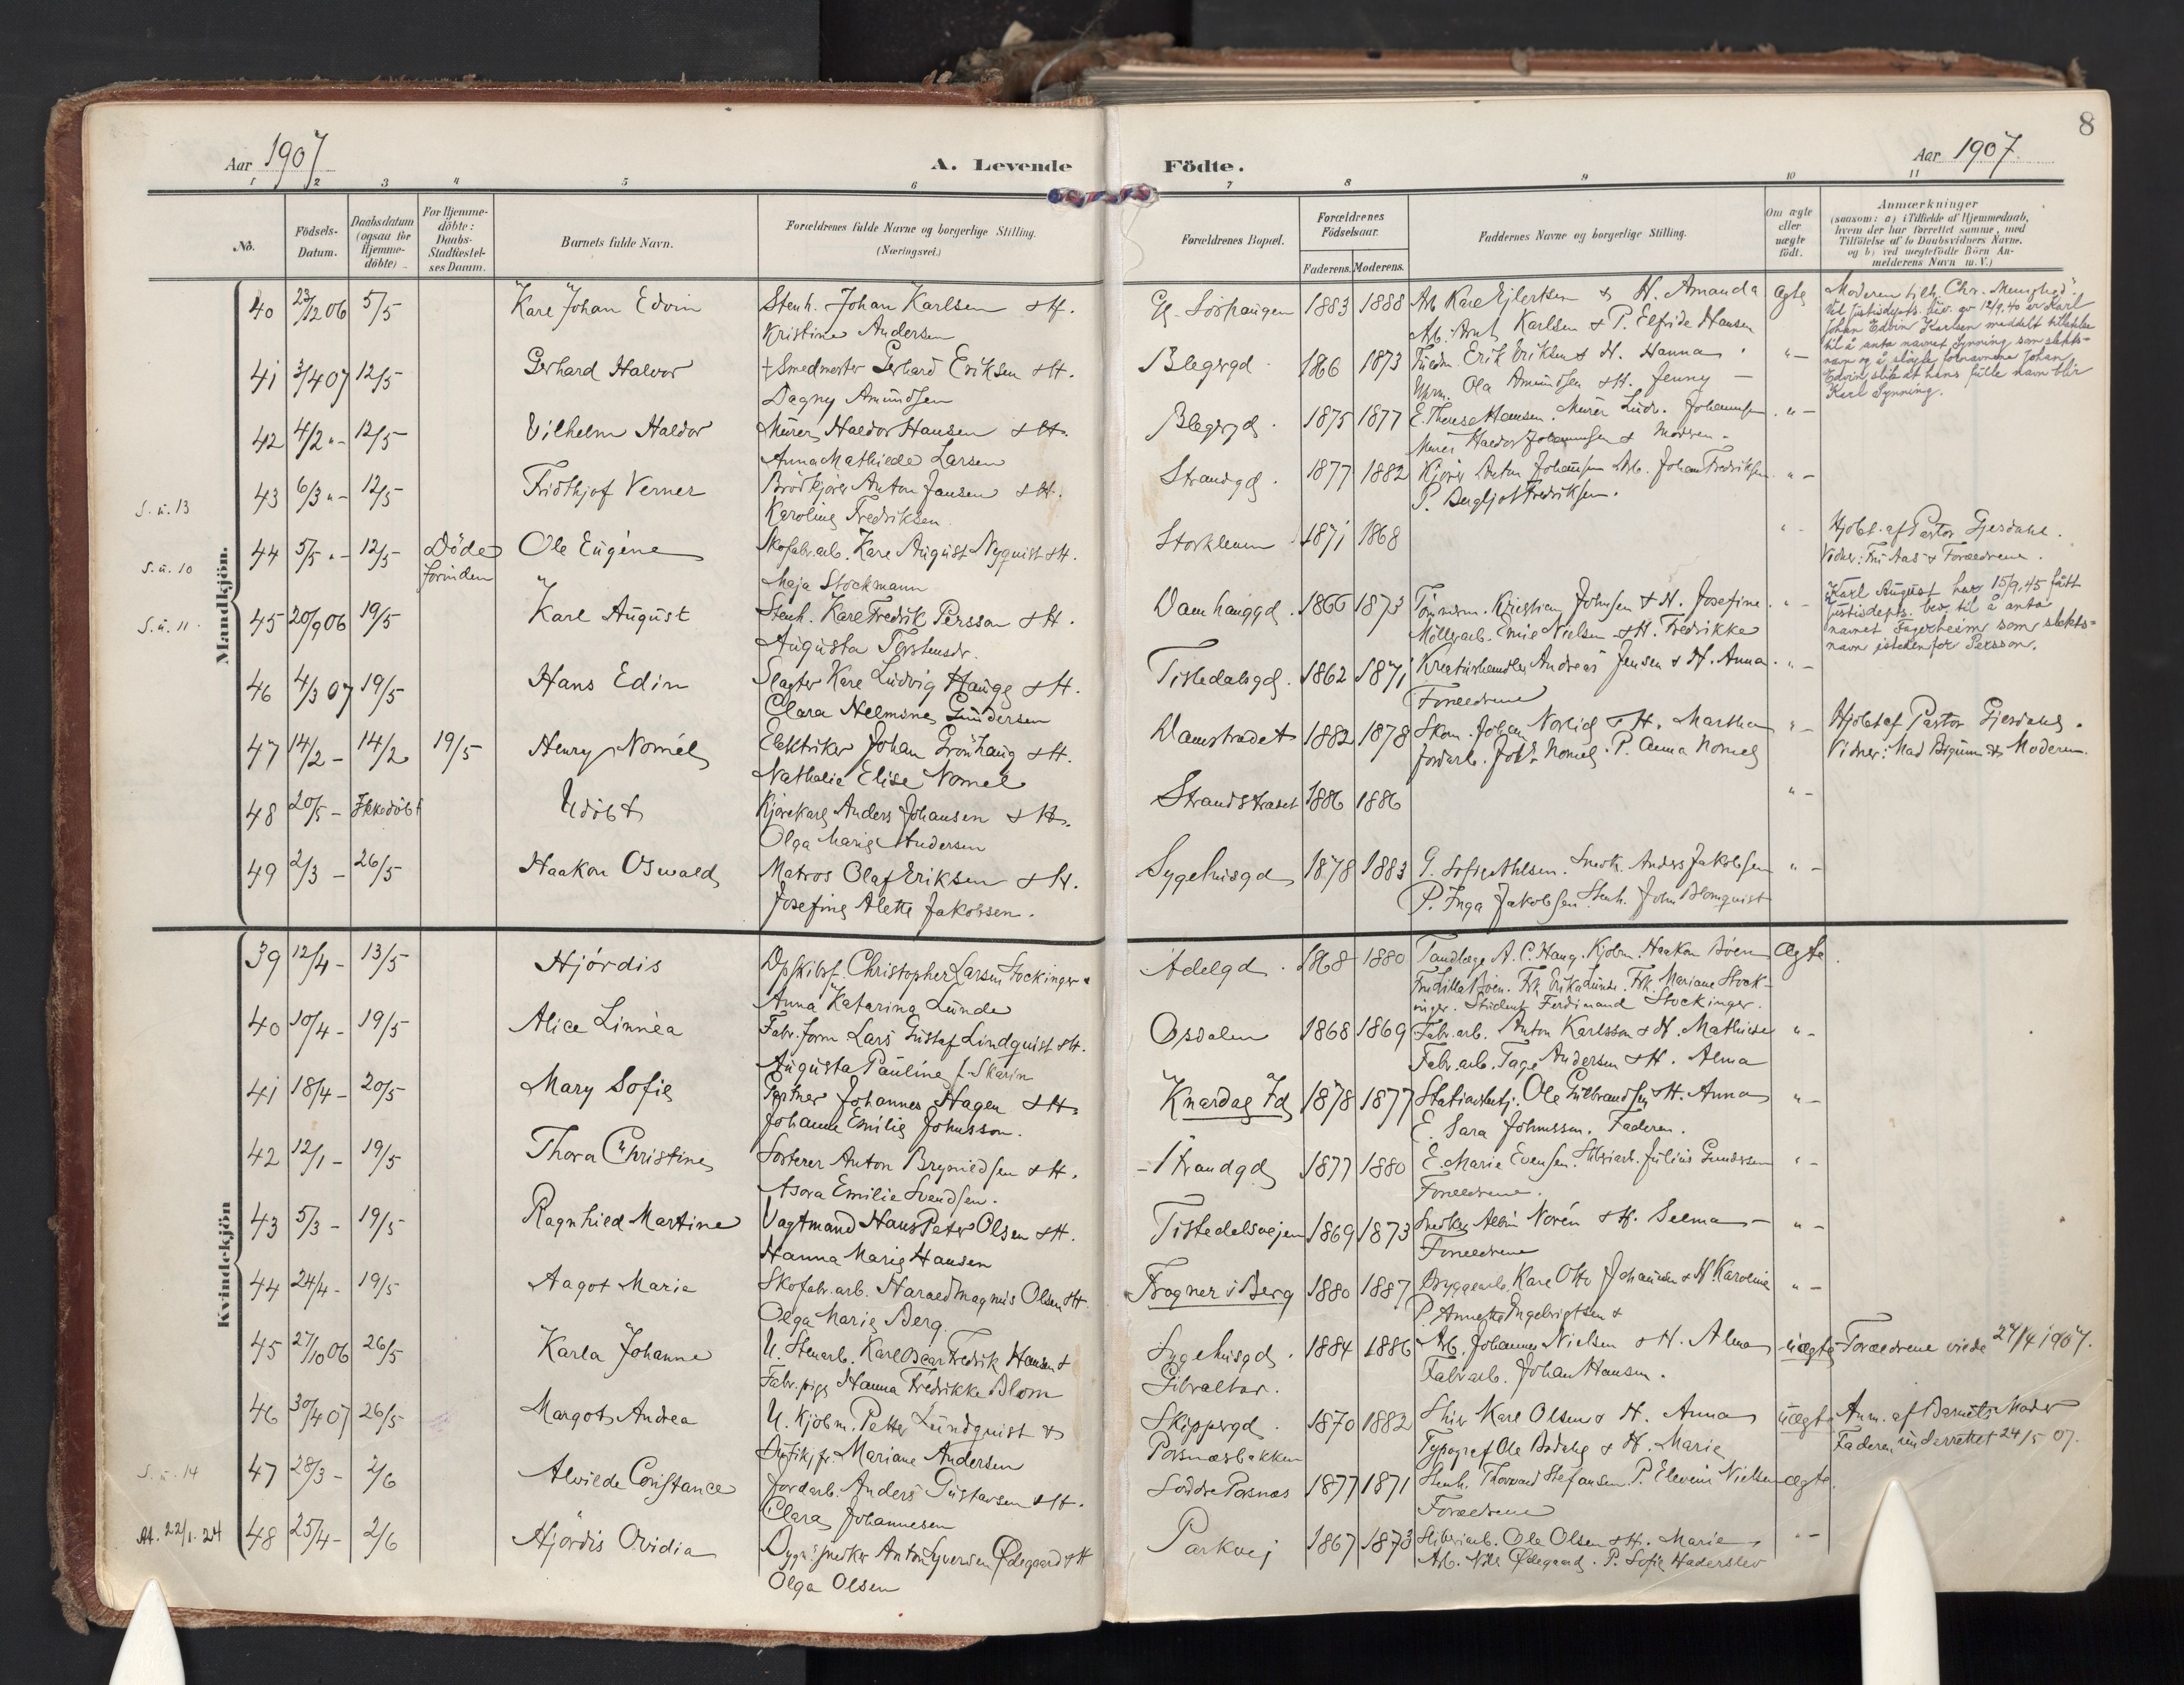 8
Aar 1907
A. Levende
Födte.
Aar 1907.
1 2 3 4 5 6 7 8 9 10 11
No.
Födsels-Datum.
Daabsdatum (ogsaa for Hjemmedöbte)
For Hjemmedöbte: Daabs-Stadfæstelses Datum.
Barnets fulde Navn.
Forældrenes fulde Navne og borgerlige Stilling.
(Næringsvei.)
Forældrenes Bopæl.
Forældrenes Födselsaar.
Faderens. Moderens.
Faddernes Navne og borgerlige Stilling.
Om ægte eller uægte födt.
Anmærkninger
(saasom: a) i Tilfælde af Hjemmedaab, hvem der har forrettet samme, med Tilföielse af to Daabsvidners Navne, og b) ved uægtefödte Börn Anmelderens Navn m. V.)
Mandkjön.
40 23/12 06 5/5 Karl Johan Edvin Stenh. Johan Karlsen & H. Gl. Sörhaugen 1883 1888 Arb. Karl Ejlertsen & H. Amanda Ægte Moderen tilh. Chr. Menighed.
Kristine Andersen Arb. Karlsen & P. Elfride Hansen
Ved Justisdepts. skr. av 12/9.40 er Karl
Johan Edvin Karlsen meddelt tillatelse
til å anta navnet Synning som slekts-
navn og å sløyfe fornavnene Johan
Edvin, slik at hans fulle navn blir
Karl Synning.
41 3/4 07 12/5 Gerhard Halvor Smedmester Gerhard Eriksen & H. Blegegd. 1866 1873 Erik Eriksen & H. Hanna "-
Dagny Amundsen Ole Amundsen & H. Jenny
42 4/2 "- 12/5 Vilhelm Haldor Murer Haldor Hansen & H. Blegegd. 1875 1877 E. Therese Hansen. Murer Ludv. Johannsen "-
Anna Mathilde Larsen Murer Haldor Johannsen & Moderen.
S. u. 13
43 6/3 "- 12/5 Fridthjof Verner Brödkjörer Anton Jansen & H. Strandgd. 1877 1882 Kjörer Anton Johansen Arb. Johan Fredriksen "-
Karoline Fredriksen P. Bergljot Fredriksen.
S. u. 10
44 5/5 "- 12/5 Döde forinden Ole Eugéne Skofabr.arb. Karl August Nyquist & H. Storkleven 1871 1868 "- Hjdbt. af Pastor Gjesdahl.
Maja Stockmann Vidner: Fru Aas & Forældrene.
S. u. 11.
45 20/9 06 19/5 Karl August Stenh. Karl Fredrik Persson & H. Damhauggd. 1866 1873 Tömmerm. Kristian Johnsen & H. Josefine "- Karl August har 15/9.45 fått
Augusta Torstensdr. Möllerarb. Emil Nielsen & H. Fredrikke
Justisdepts. bev. til å anta
navnet Fagerheim som slekts-
navn istedenfor Persson.
46 4/3 07 19/5 Hans Edin Slagter Karl Ludvig Hauge & H. Tistedalsgd. 1862 1871 Kreaturhandler Andreas Jensen & H. Anna "-
Clara Helmine Gundersen Forældrene
47 14/2 - 14/2 19/5 Henry Nomél Elektriker Johan Grönhaug & H. Damstrædet 1882 1878 Skom. Johan Norlid & H. Martha "- Hjdbt af Pastor Gjesdahl.
Nathalie Elise Nomel Jordarb. Joh. Nomel. P. Anna Nomel Vidner: Mad Bryum & Moderen.
48 20/5 - Ikkedöbt Udöbt Kjörekarl Anders Johansen & H. Strandstrædet 1886 1886 "-
Olga Marie Andersen
49 2/3 - 26/5 Haakon Oswald Matros Olaf Eriksen & H. Sygehusgd 1878 1883 G. Sofie Ahlsen. Snedk. Anders Jakobsen "-
Josefine Alette Jakobsen. P. Inga Jakobsen Stenh. John Blomquist
Kvindekjön
39 12/4 - 13/5 Hjördis Dpskibsf. Christopher Larsen Stockinger & Adelgd. 1868 1880 Tandlæge A. C. Haug. Kjöbm. Haakon Böen Ægte.
Anna Katarina Lunde Fru Lilla Böen. Frk. Erika Lunde. Frk. Mariane Stock-
inger. Student Ferdinand Stockinger.
40 10/4 - 19/5 Alice Linnéa Fabr. form. Lars Gustaf Lindquist & H. Osdalen 1868 1869 Fabr.arb. Anton Karlsson & H. Mathilde "-
Augusta Pauline f. Skarin Fabr.arb. Tage Andersen & H. Alma
41 18/4 - 20/5 Mary Sofie Gartner Johannes Hagen & H. Knardal Id 1878 1877 Stationsbetj. Ole Gulbrandsen & H. Anna "-
Johanne Emilie Johnsson. E. Sara Johnssen. Faderen.
42 12/1 - 19/5 Thora Christine Sorterer Anton Brynildsen & H. Strandgd 1877 1880 E. Marie Evensen. Sliberiarb. Julius Gundersen "-
Asora Emilie Svendsen. Forældrene.
43 5/3 - 19/5 Ragnhild Martine Vagtmand Hans Peter Olsen & H. Tistedalsvejen 1869 1873 Snedker Albin Norén & H. Selma "-
Hanna Marie Hansen Forældrene
44 24/4 - 19/5 Aagot Marie Skofabr.arb. Harald Magnus Olsen & H. Frogner i Berg 1880 1887 Bryggeriarb. Karl Otto Johansen & H. Karoline "-
Olga Marie Berg. P. Annette Engebrigtsen &
45 27/10 06 26/5 Karla Johanne U. Stenarb. Karl Oscar Fredrik Hansen & Sygehusgd. 1884 1886 Arb. Johannes Nielsen & H. Alma uægte Forældrene viede 27/4 1907.
Fabr. pige Hanna Fredrikke Blom Gibraltar. Fabr.arb. Johan Hansen.
46 30/4 07 26/5 Margot Andrea U. Kjöbm. Petter Lundquist & Skippergd. 1870 1882 Karl Olsen & H. Anna uægte Anm. af Barnets Moder
Butikjfr. Mariane Andersen Posnæsbakken Typograf Ole Bodahl & H. Marie Faderen underrettet 24/5 07.
S. u. 14
47 28/3 - 2/6 Alvilde Constance Jordarb. Anders Gustavsen & H. Söndre Posnæs 1877 1871 Stenh. Thorvard Stefansen. P. Elevine Nielsen ægte.
Clara Johannesen Forældrene
At. 22/1.24
48 25/4 - 2/6 Hjördis Ovidia Bygn.snedker Anton Syversen Ødegaard & H. Parkvej 1867 1873 Sliberiarb. Ole Olsen & H. Marie "-
Olga Olsen Arb. Nils Ødegaard. P. Sofie Haderslev